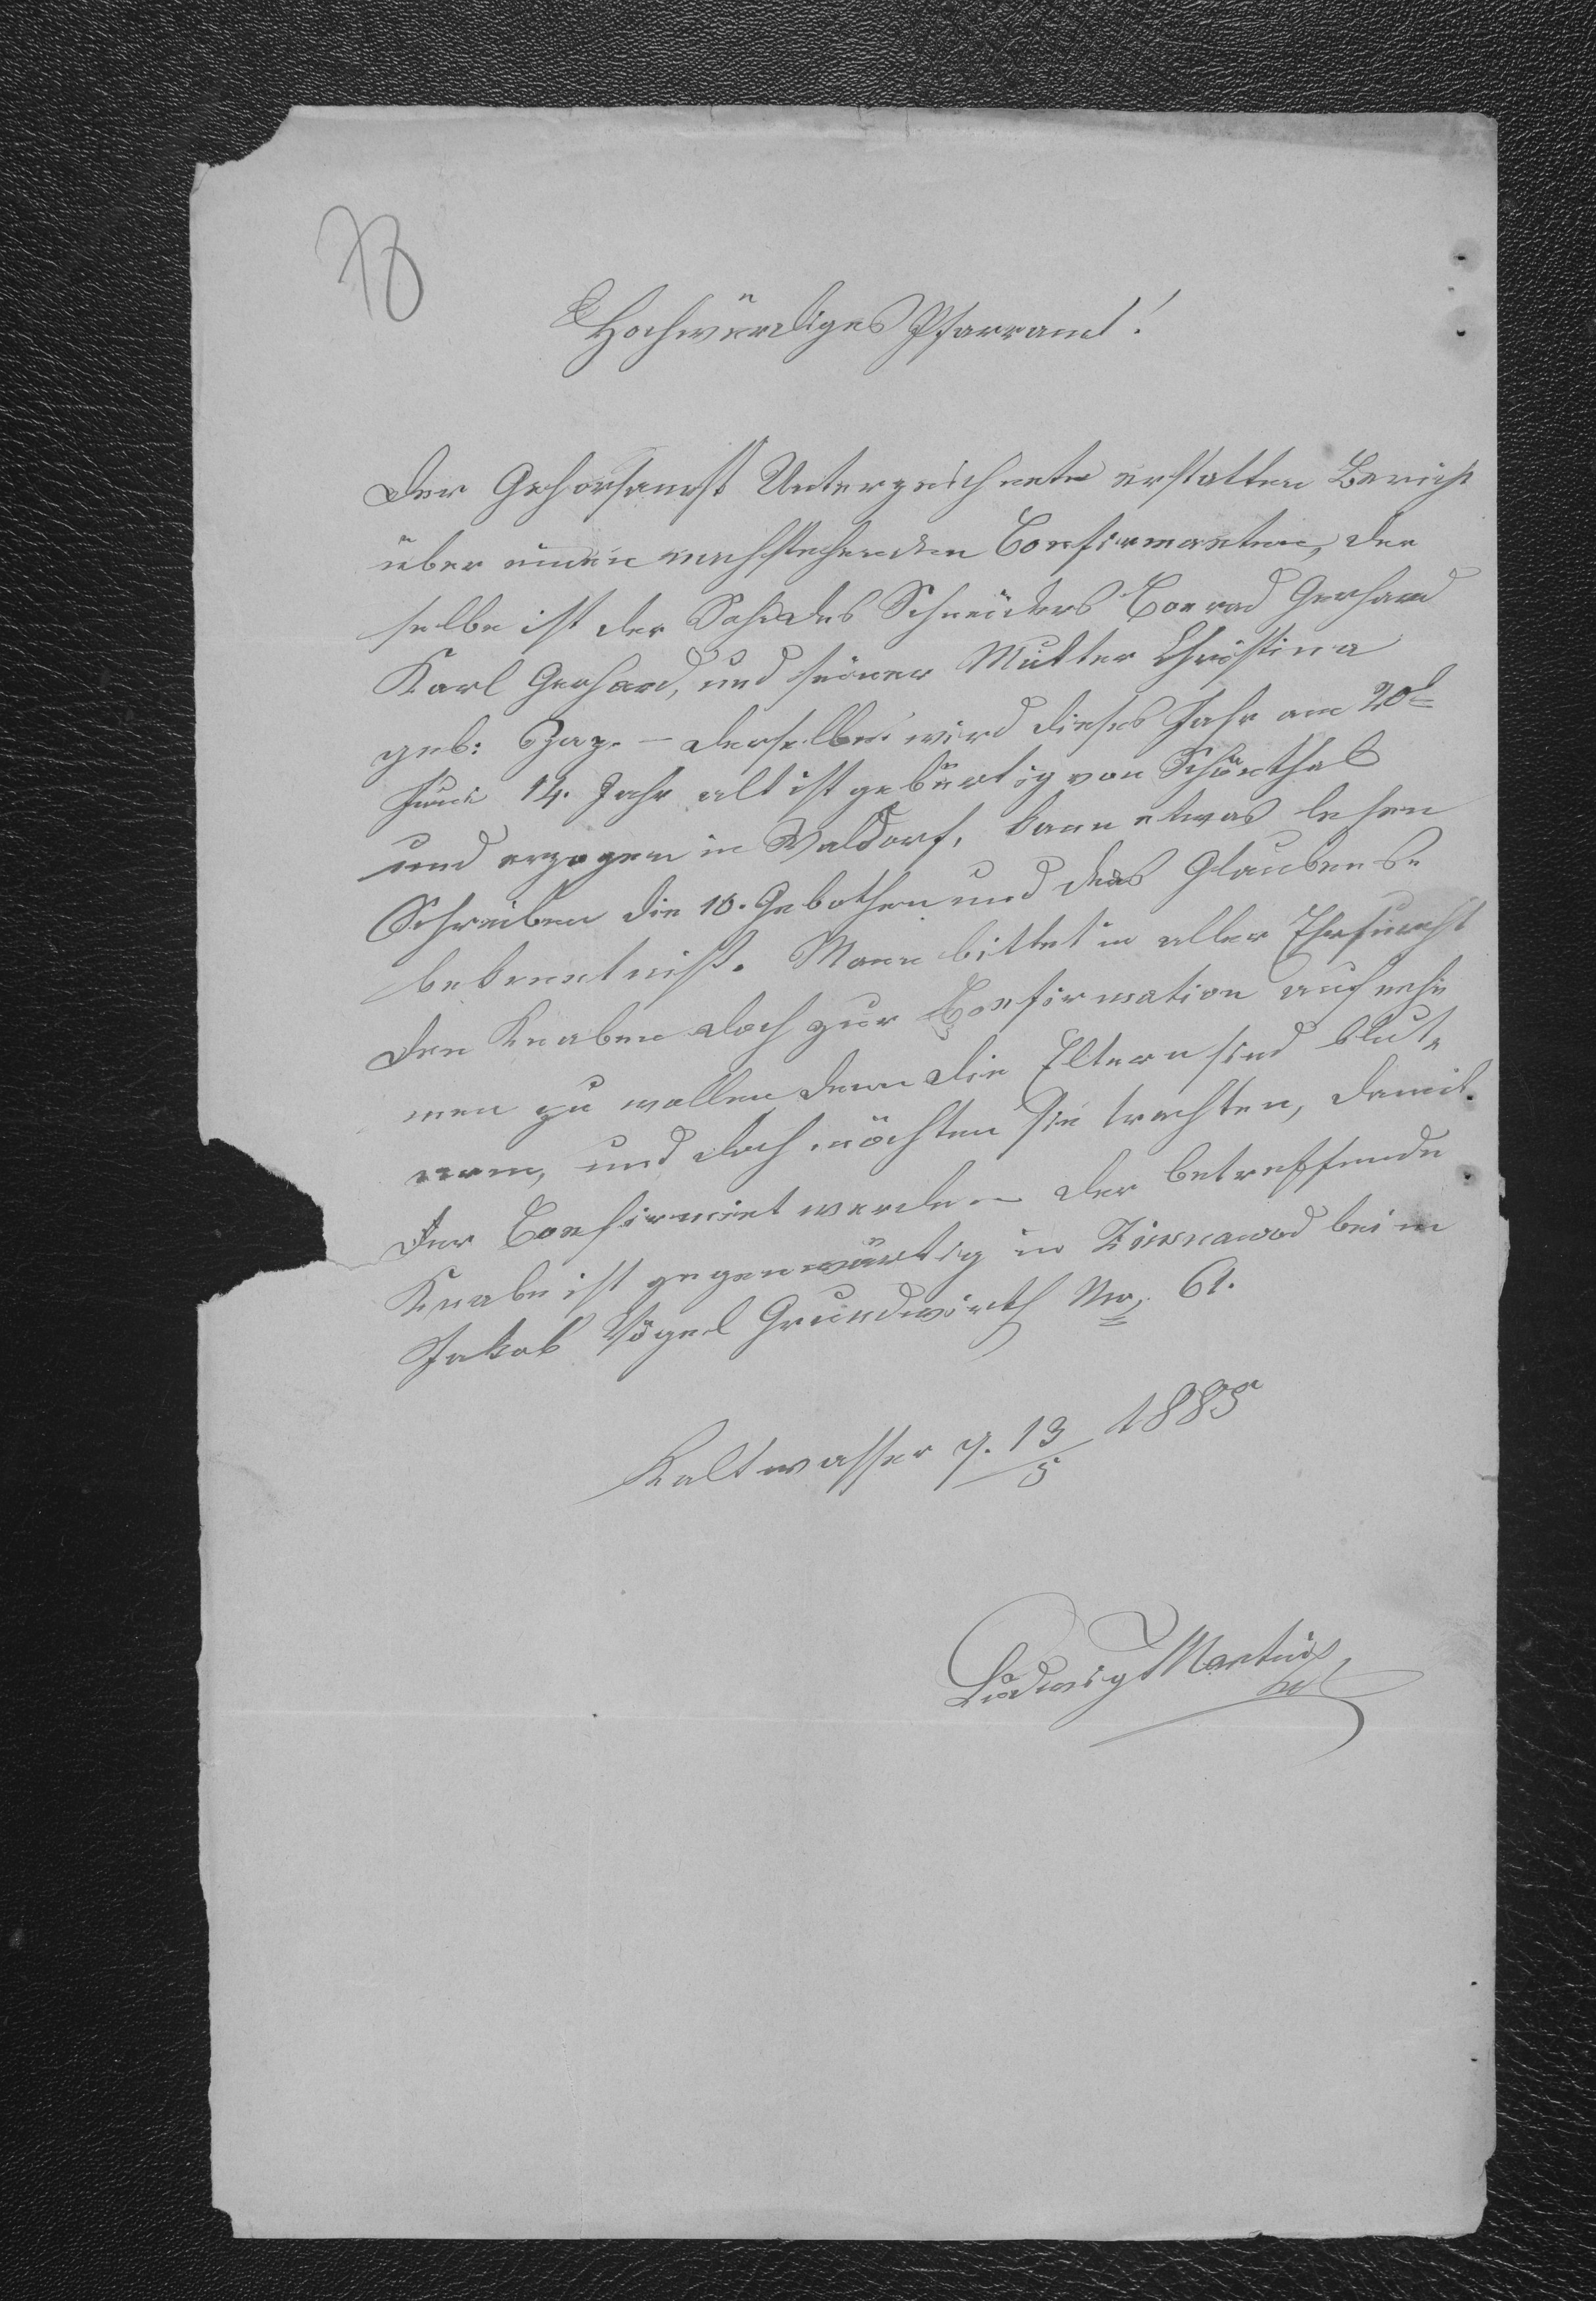 78
Hochwürdiges Pfarramt!
Der Gehorsamst Unterzeichnete erstatten Bericht
über einen nachstehenden Confirmanten, der
selbe ist der Sohn des Schneiders Conrad Gerhard
Karl Gerhard, und seiner Mutter Christina
geb: – derselbe wird dieses Jahr am 20t
Juni 14. Jahr alt ist gebürtig von Schönthal
und erzogen in Waldorf, kann etwas lesen
Schreiben die 10. Gebothen und das Glaubens
bekenntniß. Mann bittet in aller Ehrfurcht
den Knaben doch zur Confirmation aufneh
men zu wollen denn die Eltern sind blut
arm, und doch möchten Sie trachten, damit
der Confirmiet werden der betreffende
Knabe ist gegenwärtig in beim
Jakob Vogel Grundwirth Nro, 61.
Kaltwasser 13/5 1885
Ludwig Martini